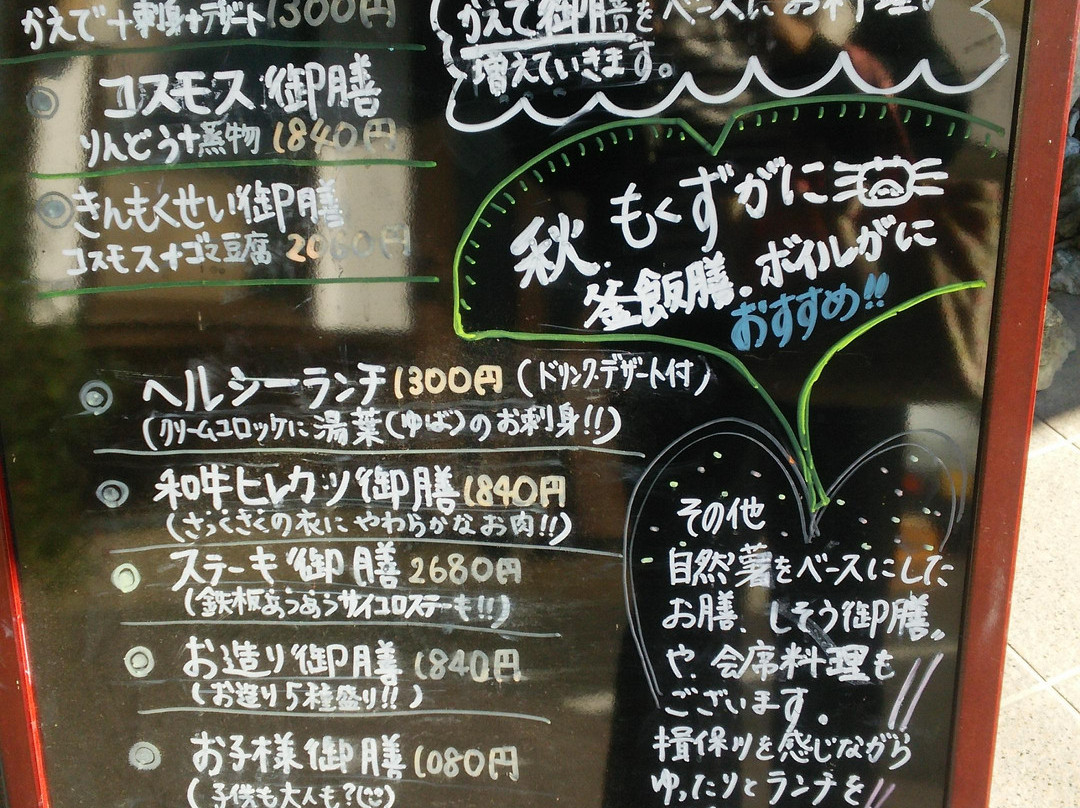 かえで+刺身+デザート 1300円
コスモス御膳
りんどう+蒸物 1840円
きんもくせい御膳
コスモス+ゴマ豆腐 2060円
かえで御膳をベースにお料理が
増えていきます。
秋 もくずがに
釜飯膳。ボイルがに
おすすめ!!
ヘルシーランチ 1300円 (ドリンク・デザート付)
(クリームコロッケに湯葉(ゆば)のお刺身!!)
和牛ヒレカツ御膳 1840円
(さくさくの衣にやわらかなお肉!!)
ステーキ御膳 2680円
(鉄板あつあつサイコロステーキ!!)
お造り御膳 1840円
(お造り5種盛り!!)
お子様御膳 1080円
(子供も大人も?)
その他
自然薯をベースにした
お膳、しそう御膳。
や、会席料理も
ございます。
揖保川を感じながら
ゆったりとランチを